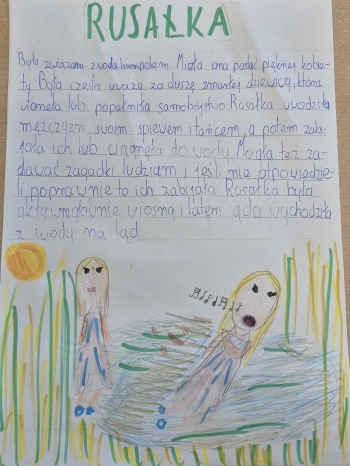 RUSAŁKA
Była związana z wodą lasem polem. Miała ona postać pięknej kobie-
ty Była często uważa za duszę zmarłej dziewicy, która
utoneła lub popełniła samobójstwo Rusałka uwodziła
mężczyzn swoim śpiewem i tańcem, a potem zabi-
jała ich lub ciągneła do wody Mogła też za-
dawać zagadki ludziom i jeśli nie otpowiedzie-
li poprawnie to ich zabijała Rusałka była
aktywna głównie wiosną i latem gdy wychodziła
z wody na ląd.